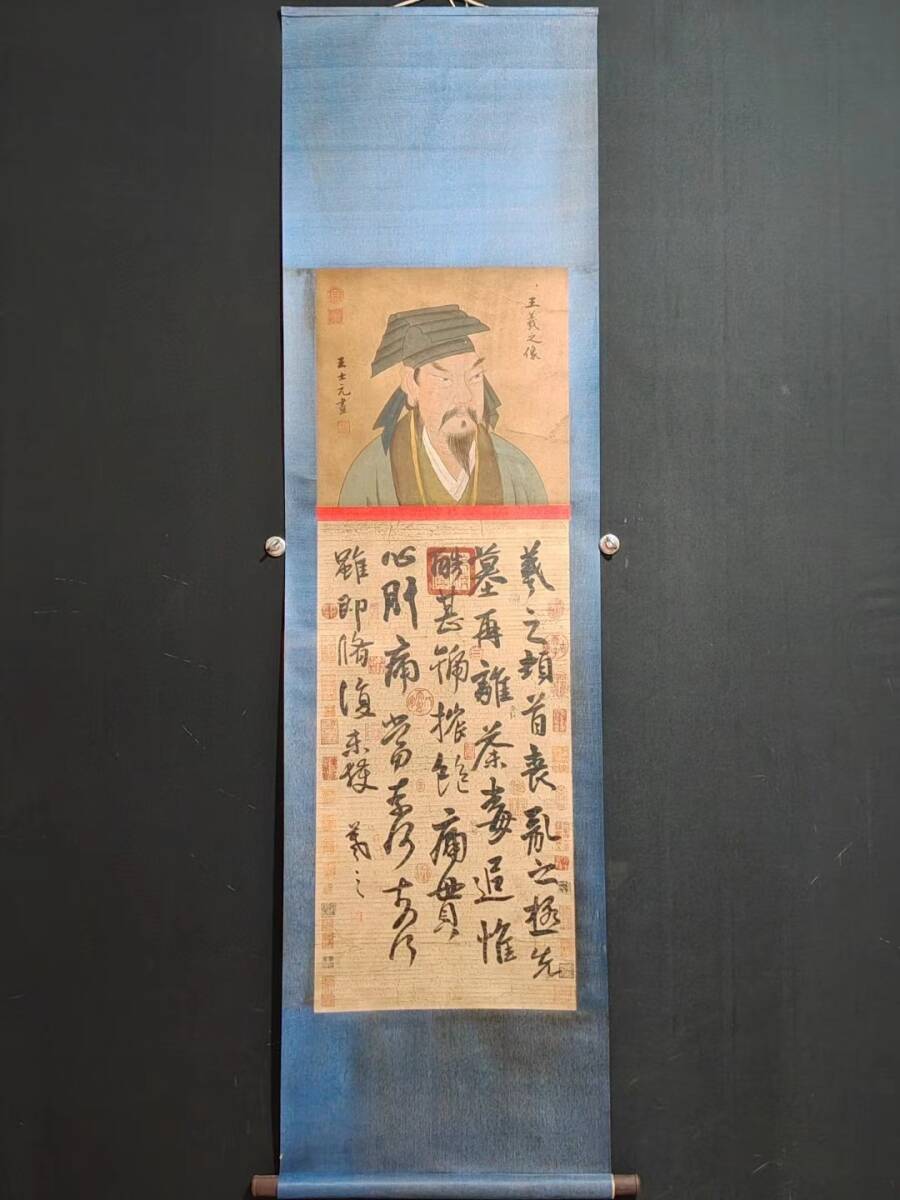 王羲之像
王士元畫
羲之頓首喪亂之極先
墓再離荼毒追惟
酷甚號摧絕痛貫
心肝痛當奈何奈何
雖即脩復未獲 羲之